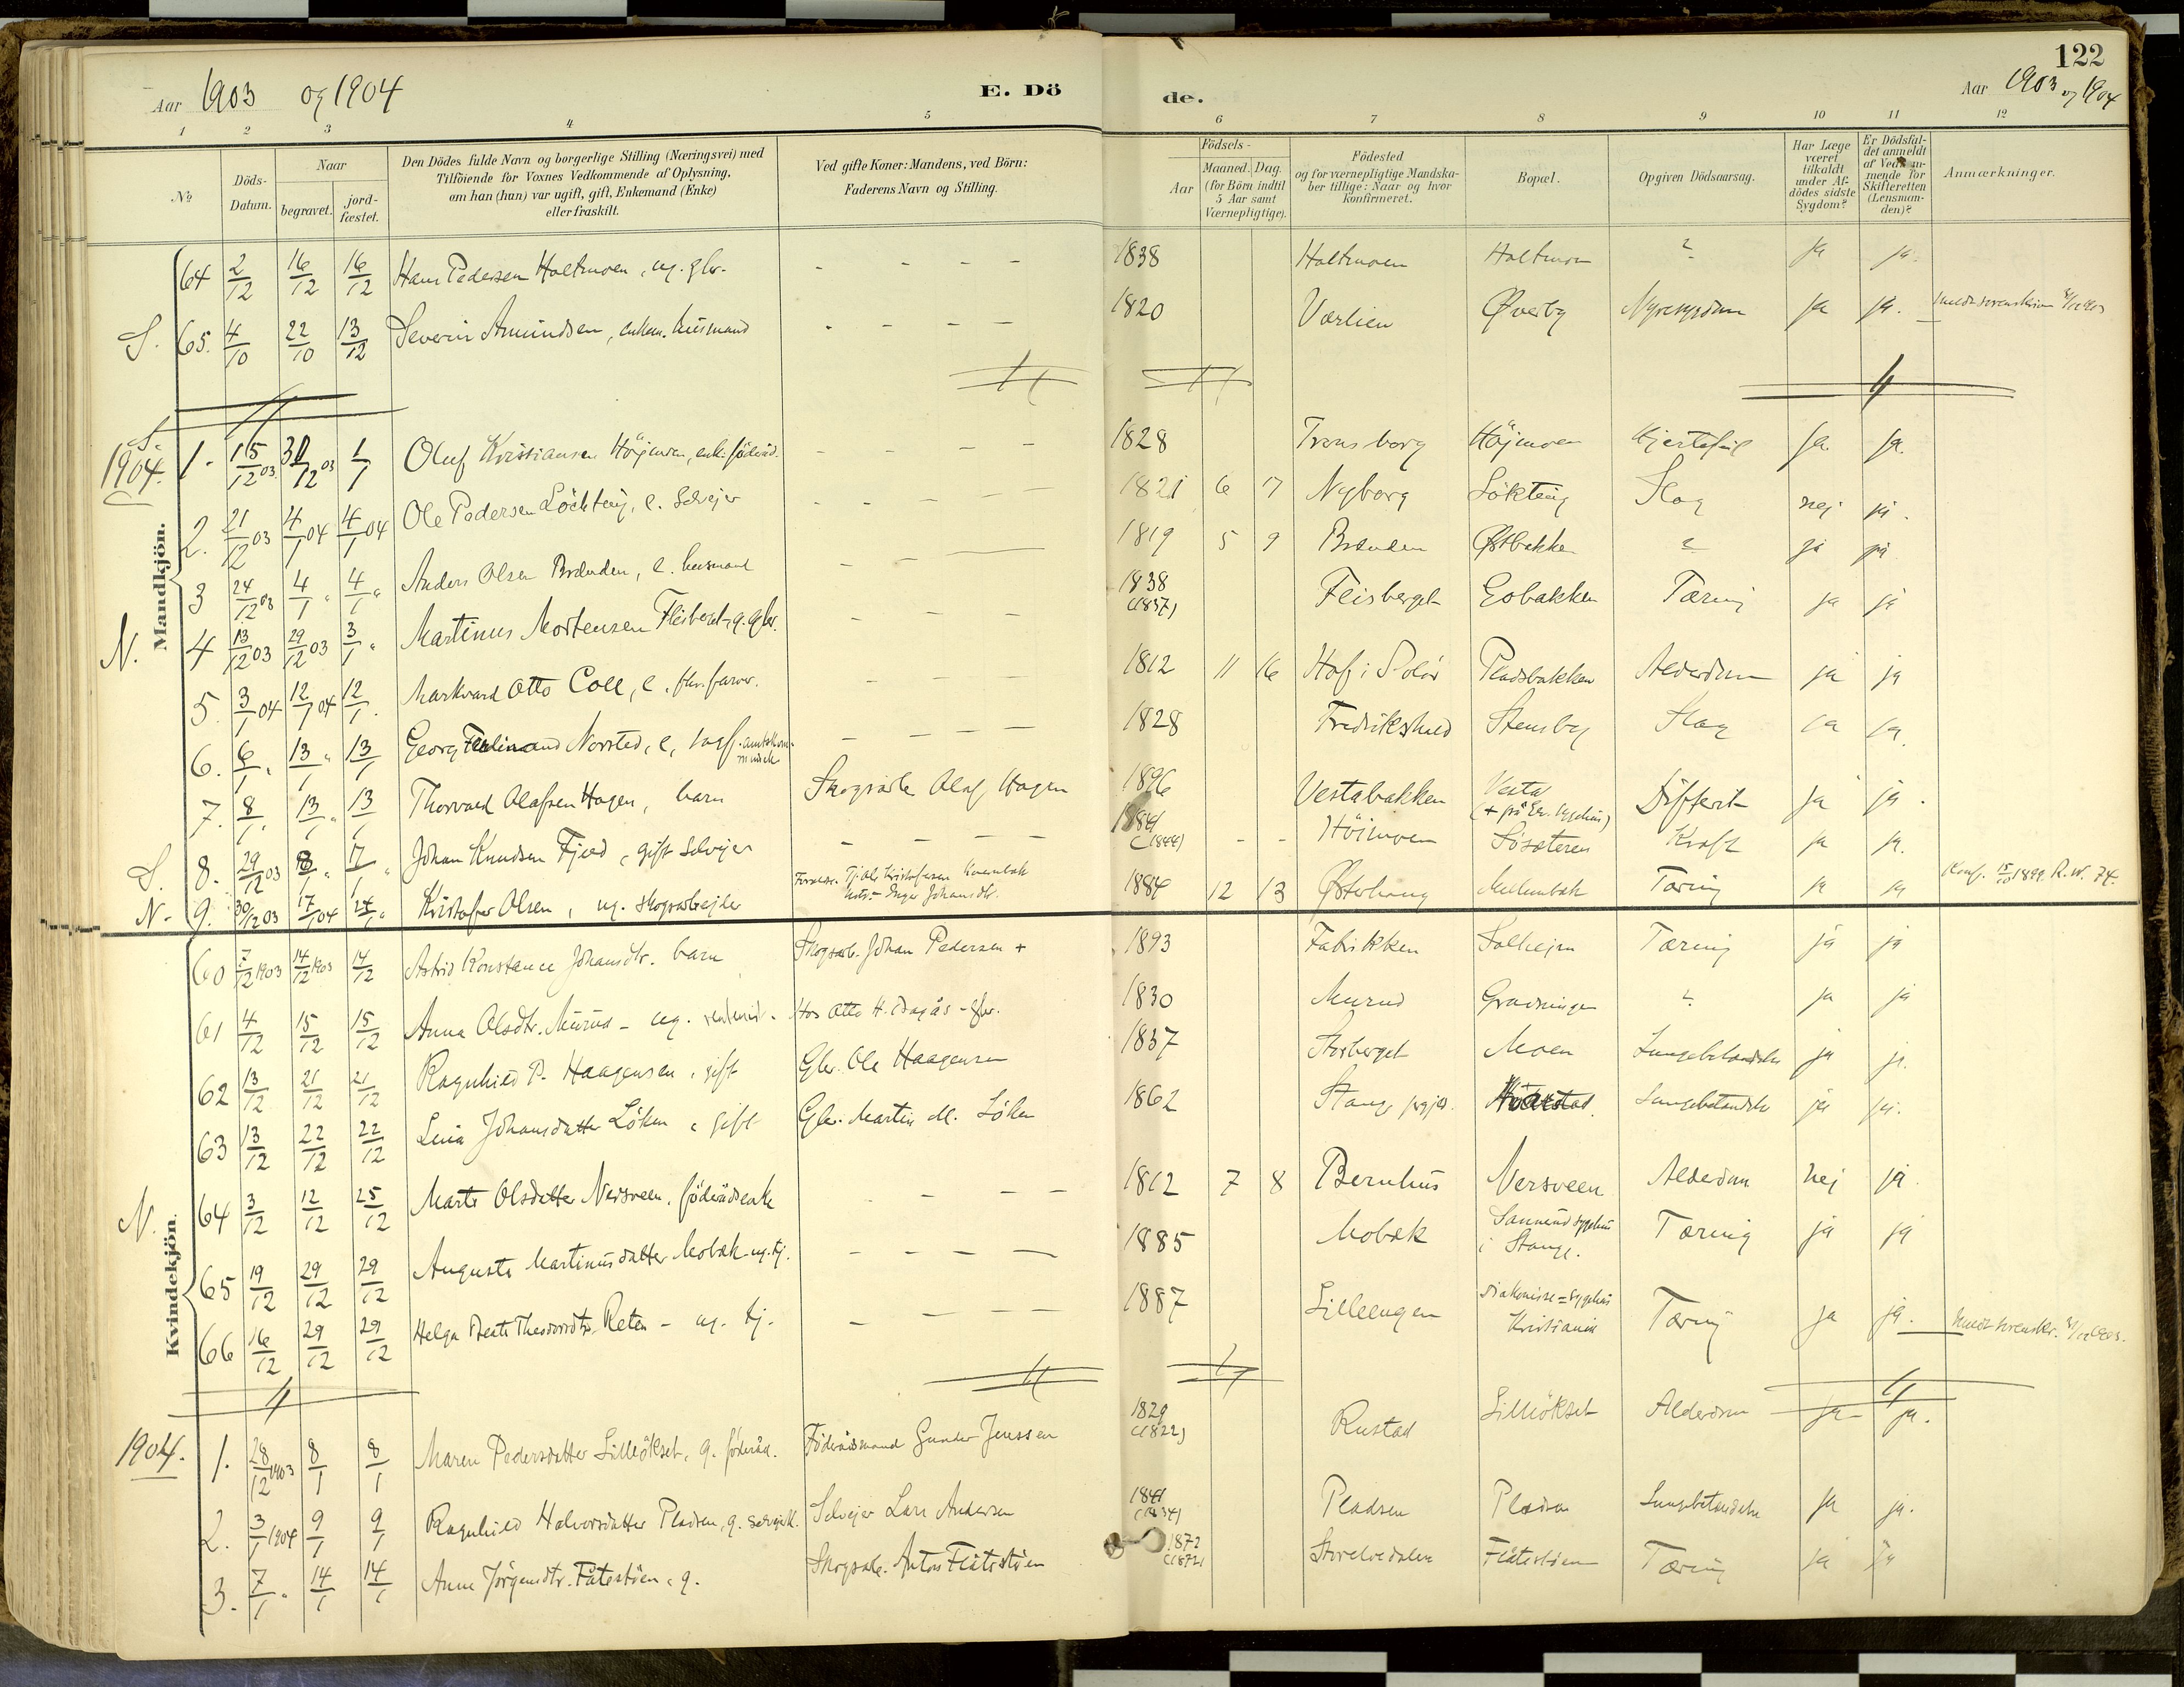 122
Aar 1903 og 1904
E. Döde.
Aar 1903 og 1904
1 2 3 4 5 6 7 8 9 10 11 12
No.
Döds-Datum.
Naar
begravet.
jordfæstet.
Den Dödes fulde Navn og borgerlige Stilling (Næringsvei) med
Tilföiende for Voxnes Vedkommende af Oplysning,
om han (hun) var ugift, gift, Enkemand (Enke)
eller fraskilt.
Ved gifte Koner: Mandens, ved Börn:
Faderens Navn og Stilling.
Födsels-
Aar
Maaned. Dag.
(for Börn indtil
5 Aar samt
Værnepligtige).
Födested
og for værnepligtige Mandska-
ber tillige: Naar og hvor
konfirmeret.
Bopæl.
Opgiven Dödsaarsag.
Har Læge
været
tilkaldt
under Af-
dödes sidste
Sygdom?
Er Dödsfal-
det anmeldt
af Vedkom-
mende for
Skifteretten
(Lensman-
den)?
Anmærkninger.
Mandkjön.
64 2/12 16/12 16/12 Hans Pedersen Holtmoen, ug. gbr. - - - - 1838 Holtmoen Holtmoen ? ja ja.
S. 65. 4/10 22/10 13/12 Severin Amundsen, enkem. husmand - - - - 1820 Værlien Øverby Nyresygdom ja ja.
S.
1904. 1. 15/12 03 31/12 03 1/1 Oluf Kristiansen Höjmoen, enk. föderåd. - - - 1828 Tronsborg Höjmoen Hjertefeil ja. ja.
2. 21/12 03 4/1 04 4/1 04 Ole Pedersen Löchting, e. Selvejer - - - - 1821 6 17 Nyborg Lökting Slag nej ja.
3 24/12 03 4/1 " 4/1 " Anders Olsen Brænden, e. husmand - - - 1819 5 9 Brænden Østbakken ? ja ja.
N. 4 13/12 03 29/12 03 3/1 " Martinus Mortensen Fleisberget, g. gbr. - - - 1838 (1837) Fleisberget Eobakken Tæring ja ja
5. 3/1 04 12/1 04 12/1. Markvard Otto Coll, e. fhv. farver. - - - - 1812 11 16 Hof i Solör Pladsbakken Alderdom ja ja
6. 6/1 " 13/1 " 13/1 Georg Ferdinand Norsted, e, - - - - 1828 Fredrikshald Stensby Slag ja ja.
7. 8/1 " 13/1 " 13/1 Thorvald Olafsen Hagen, barn Skogsarb. Olaf Hagen 1896 Vestabakken Vesta Difterit ja ja.
S. 8. 29/12 03 8/1 " 17/1 " Johan Knudsen Fjeld, gift Selvejer - - - - (1844) - - Höimoen Sösæteren Kræft ja ja.
N. 9. 30/12 03 17/1 04 24/1 " Kristofer Olsen, ug. skogsarbejder 1884 12 13 Østerhaug Mellembæk Tæring ja ja Konf. 15/10 1899.
Kvindekjön.
60 7/12 1903 14/12 1903 14/12 Astrid Konstance Johansdtr. barn Skogsarb. Johan Pedersen + 1893 Fabrikken Solhejm Tæring ja ja
61 4/12 15/12 15/12 Anna Olsdtr. Murud - ug. Hos Otto H. - gbr. 1830 Murud Gravningen ? ja ja
62 13/12 21/12 21/12 Ragnhild P. Haagensen, gift Gbr. Ole Haagensen 1837 Storberget Moen Lungebetændelse ja ja.
63 13/12 22/12 22/12 Lina Johansdatter Löken, gift Gbr. Martin M. Löken 1862 Stange Lungebetændelse ja ja.
N. 64 3/12 12/12 25/12 Marte Olsdatter Nersveen, föderådsenke - - - - 1812 7 8 Bernhus Nersveen Alderdom nej ja.
65 19/12 29/12 29/12 Auguste Martinusdatter Mobæk ug. tj. - - - - 1885 Mobæk Sanerud sygehus i Stange. Tæring ja ja
66 16/12 29/12 29/12 Helga Beate Theodorsdtr. Reten - ug. tj. - - - - 1887 Lilleengen Diakonisse=sygehus Kristiania Tæring ja ja.
1904. 1. 28/12 1903 8/1 8/1 Maren Pedersdatter Lilleökset, g. föderåd. Föderådsmand Gunder Jenssen 1829 (1822) Rustad Lilleökset Alderdom ja ja.
2. 3/1 1904 9/1 9/1 Ragnhild Halvorsdatter Pladsen, g. Selvejer Lars Andersen 1841 (1834) Pladsen Pladsen Lungebetændelse ja ja.
3. 7/1 " 14/1 14/1 Anne Jörgensdtr. Flåtestöen, g. Skogsarb. Anton Flåtestöen 1872 (1872) Storelvedalen Flåtestöen Tæring ja ja